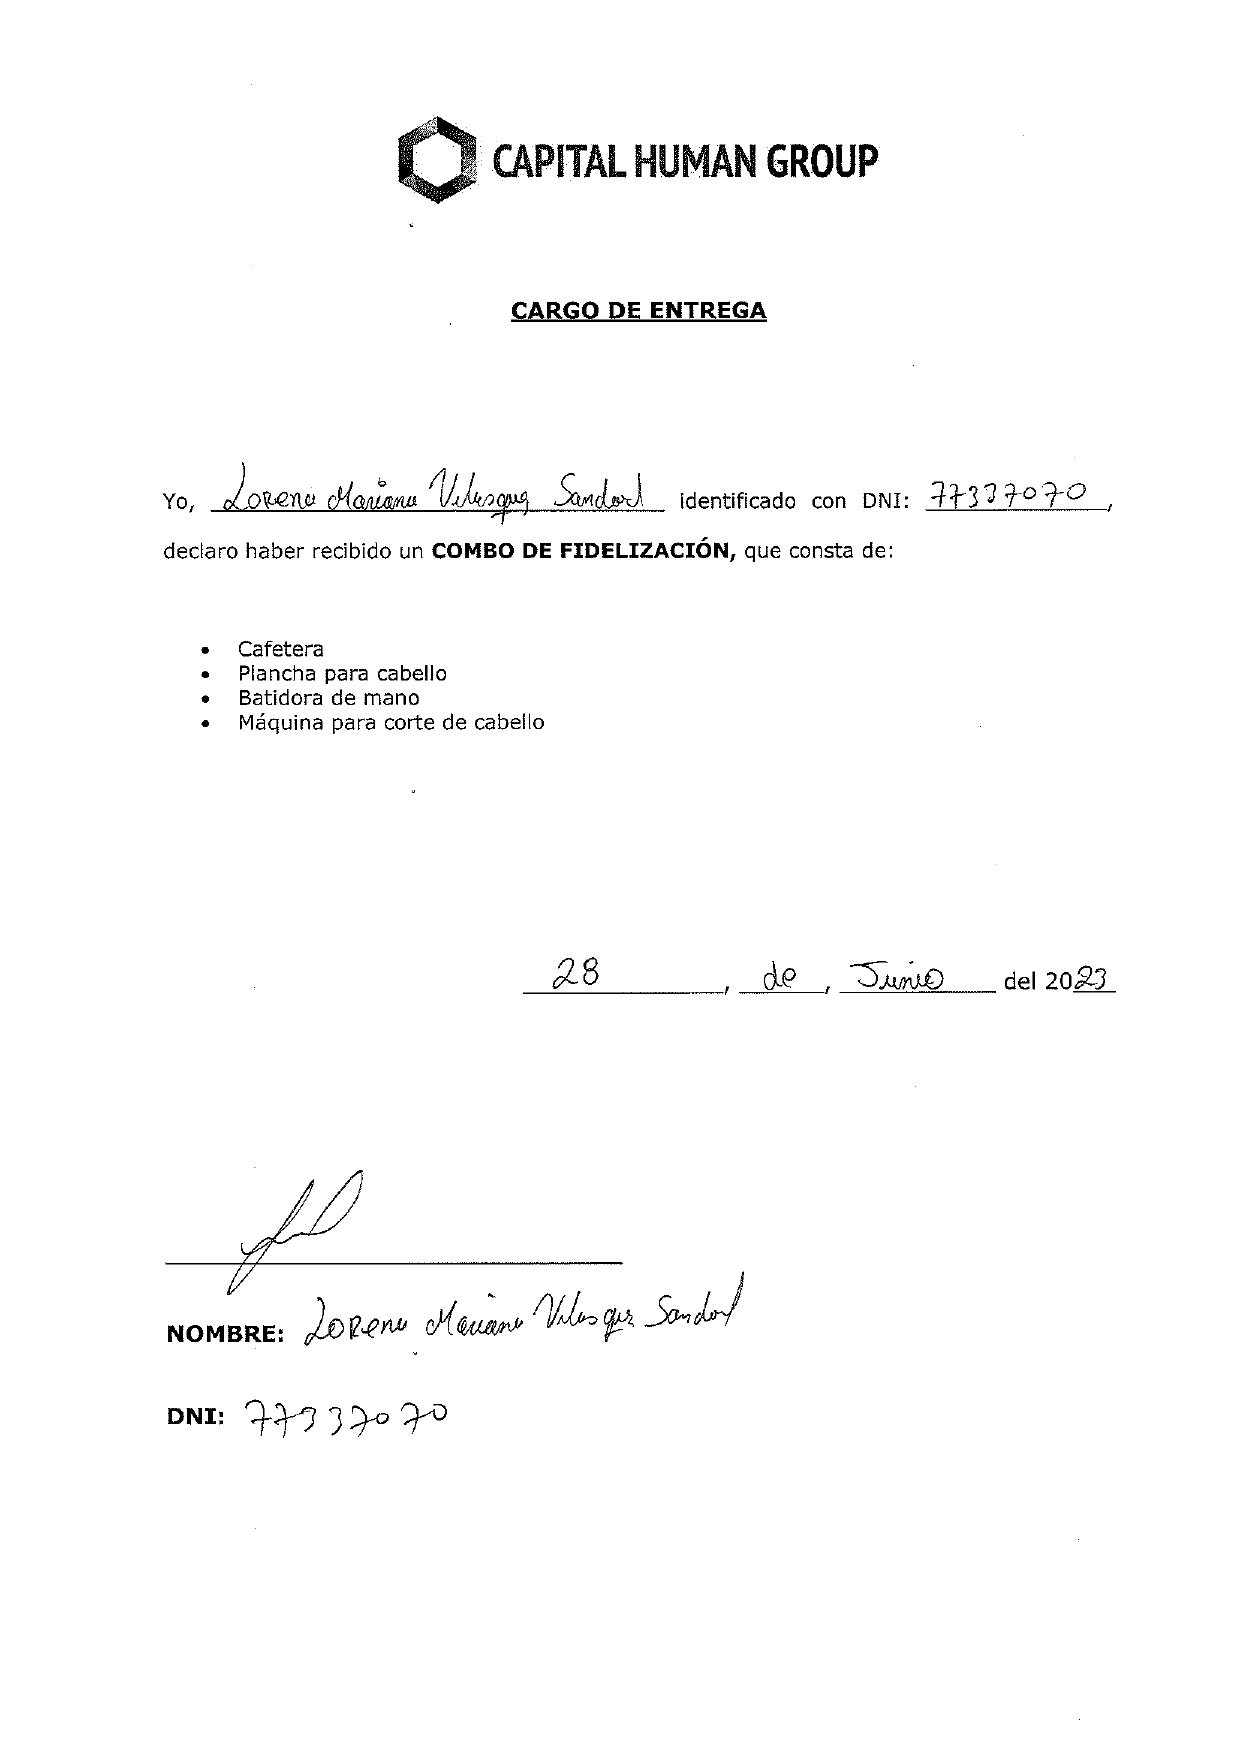 CAPITAL HUMAN GROUP
CARGO DE ENTREGA
Yo, Lorena Mariana Velasquez Sandoval identificado con DNI: 77337070,
declaro haber recibido un COMBO DE FIDELIZACIÓN, que consta de:
• Cafetera
• Plancha para cabello
• Batidora de mano
• Máquina para corte de cabello
28, de, Junio del 2023
NOMBRE: Lorena Mariana Velasquez Sandoval
DNI: 77337070